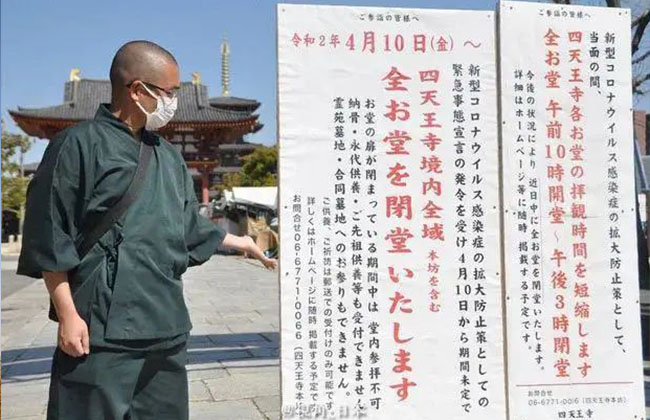 ご参詣の皆様へ
令和2年4月10日(金)～
新型コロナウイルス感染症の拡大防止策としての
緊急事態宣言の発令を受け4月10日から期間未定で
四天王寺境内全域 本坊を含む
全お堂を閉堂いたします
お堂の扉が閉まっている期間中は 堂内参拝不可
納骨・永代供養・ご先祖供養等も受付できません
霊苑墓地・合同墓地へのお参りもできません。
ご供養、ご祈祷は郵送での受付のみ可能です
詳しくはホームページに随時 掲載する予定で
お問合せ06-6771-0066(四天王寺本
ご参詣の皆様へ
新型コロナウイルス感染症の拡大防止策として、
当面の間、
四天王寺各お堂の拝観時間を短縮します
全お堂 午前10時開堂～午後3時閉堂
今後の状況により 近日中に全お堂を閉堂いたします。
詳細はホームページ等に随時 掲載する予定です。
お問合せ
06-6771-0066(四天王寺本坊)
四天王寺